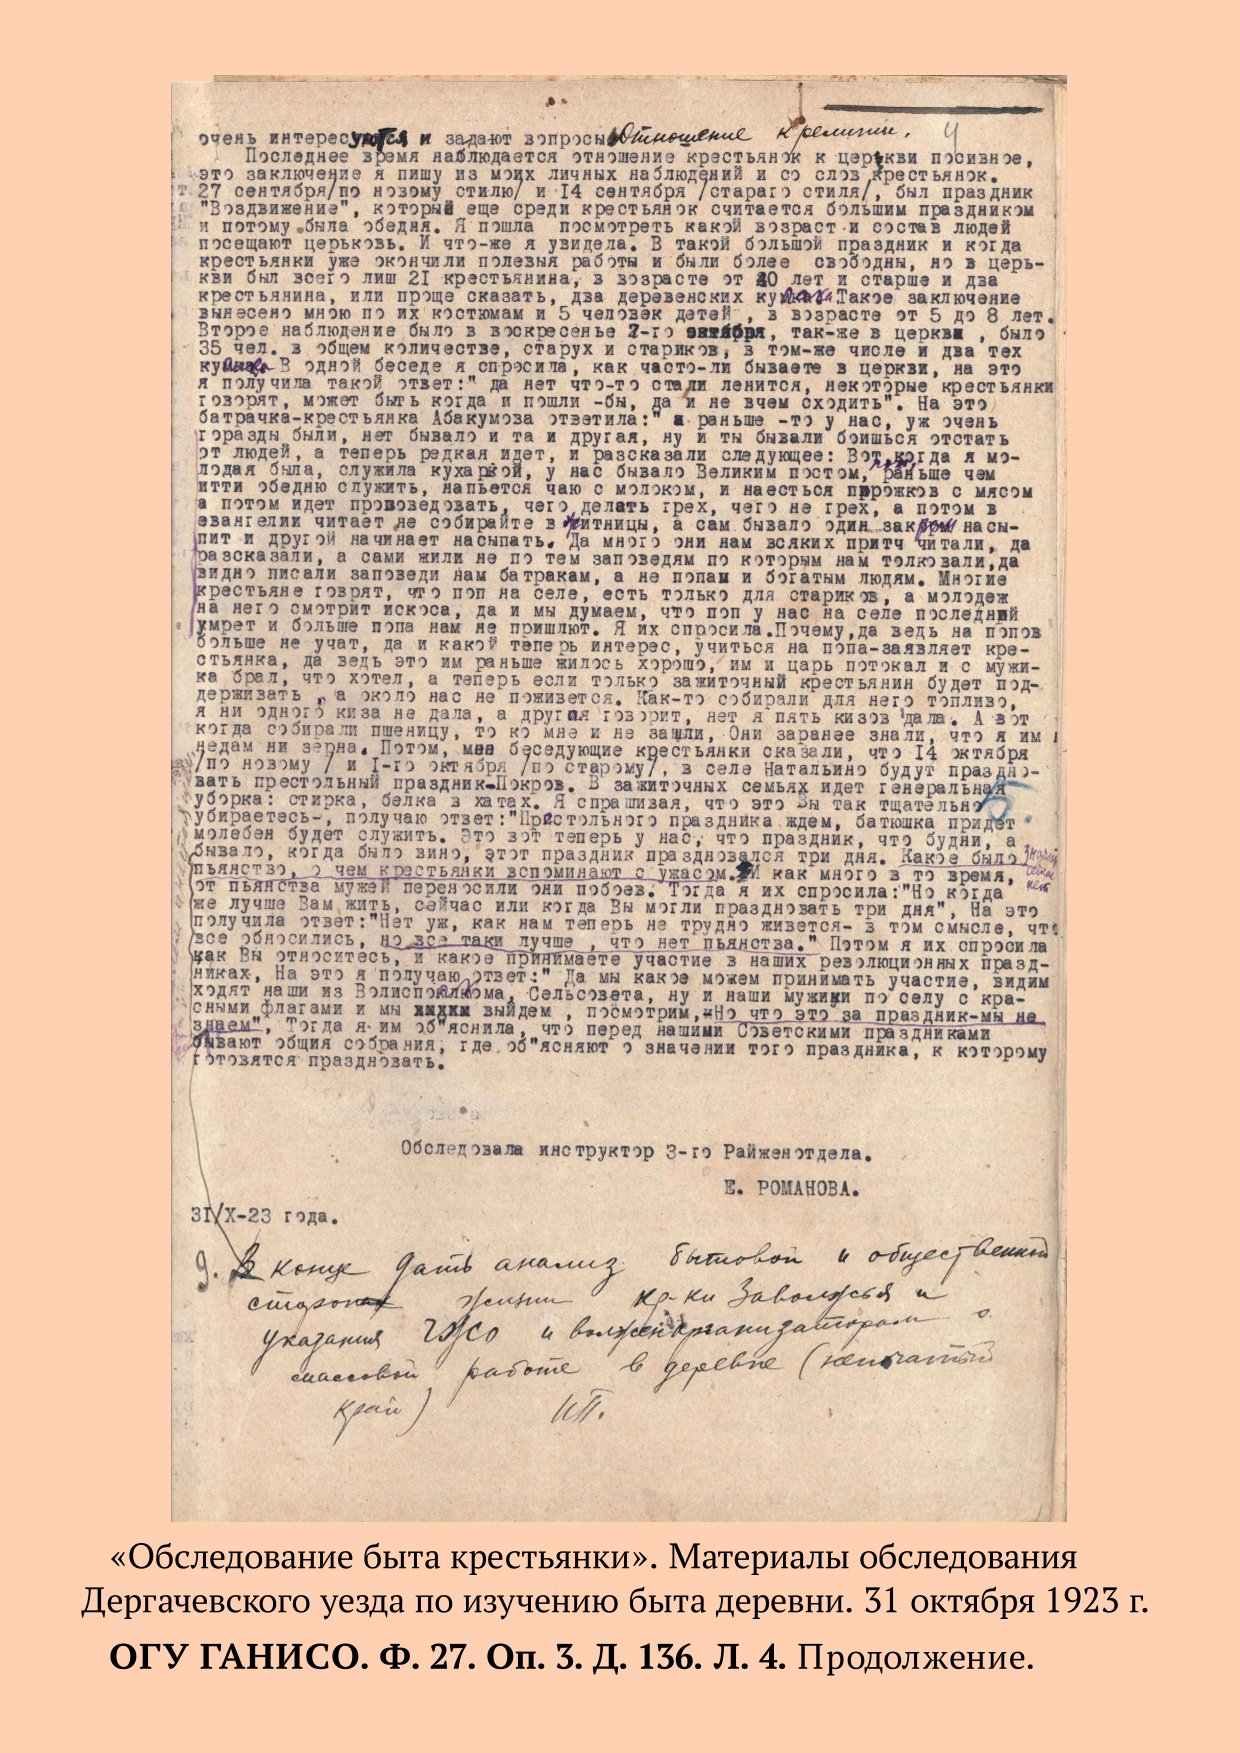 очень интересуются и задают вопросы Отношение к религии. 4
Последнее время наблюдается отношение крестьянок к церкви посивное,
это заключение я пишу из моих личных наблюдений и со слов крестьянок.
27 сентября/по новому стилю/ и 14 сентября /стараго стиля/, был праздник
"Воздвижение", который еще среди крестьянок считается большим праздником
и потому была обедня. Я пошла посмотреть какой возраст и состав людей
посещают церьковь. И что-же я увидела. В такой большой праздник и когда
крестьянки уже окончили полевыя работы и были более свободны, но в церь-
кви был всего лиш 21 крестьянина, в возрасте от 40 лет и старше и два
крестьянина, или проще сказать, два деревенских кулака. Такое заключение
вынесено мною по их костюмам и 5 человек детей , в возрасте от 5 до 8 лет.
Второе наблюдение было в воскресенье 7-го октября, так-же в церкви , было
35 чел. в общем количестве, старух и стариков, в том-же числе и два тех
кулака. В одной беседе я спросила, как часто-ли бываете в церкви, на это
я получила такой ответ:" да нет что-то стали ленится, некоторые крестьянки
говорят, может быть когда и пошли -бы, да и не вчем сходить". На это
батрачка-крестьянка Абакумова ответила:" а раньше -то у нас, уж очень
горазды были, нет бывало и та и другая, ну и ты бывали боишься отстать
от людей, а теперь редкая идет, и рассказали следующее: Вот когда я мо-
лодая была, служила кухаркой, у нас бывало Великим постом, поп, раньше чем
итти обедню служить, напьется чаю с молоком, и наесться пирожков с мясом
а потом идет проповедовать, чего делать грех, чего не грех, а потом в
евангелии читает не собирайте в житницы, а сам бывало один закром насы-
пит и другой начинает насыпать. Да много они нам всяких притч читали, да
рассказали, а сами жили не по тем заповедям по которым нам толковали,да
видно писали заповеди нам батракам, а не попам и богатым людям. Многие
крестьяне говрят, что поп на селе, есть только для стариков, а молодеж
на него смотрит искоса, да и мы думаем, что поп у нас на селе последний
умрет и больше попа нам не пришлют. Я их спросила.Почему,да ведь на попов
больше не учат, да и какой теперь интерес, учиться на попа-заявляет кре-
стьянка, да ведь это им раньше жилось хорошо, им и царь потокал и с мужи-
ка брал, что хотел, а теперь если только зажиточный крестьянин будет под-
держивать , а около нас не поживется. Как-то собирали для него топливо,
я ни одного киза не дала, а другая говорит, нет я пять кизов дала. А вот
когда собирали пшеницу, то ко мне и не зашли, Они заранее знали, что я им
недам ни зерна. Потом, мне беседующие крестьянки сказали, что 14 октября
/по новому / и 1-го октября /по старому/, в селе Натальино будут праздно-
вать престольный праздник-Покров. В зажиточных семьях идет генеральная
уборка: стирка, белка в хатах. Я спрашивая, что это Вы так тщательно
убираетесь-, получаю ответ:"Престольного праздника ждем, батюшка придет
молебен будет служить. Это вот теперь у нас, что праздник, что будни, а
бывало, когда было вино, этот праздник праздновался три дня. Какое было
пьянство, о чем крестьянки вспоминают с ужасом. И как много в то время,
от пьянства мужей переносили они побоев. Тогда я их спросила:"Но когда
же лучше Вам жить, сейчас или когда Вы могли праздновать три дня", На это
получила ответ:"Нет уж, как нам теперь не трудно живется- в том смысле, что
все обносились, но все таки лучше , что нет пьянства." Потом я их спросила
как Вы относитесь, и какое принимаете участие в наших революционных празд-
никах, На это я получаю ответ:" Да мы какое можем принимать участие, видим
ходят наши из Волисполкома, Сельсовета, ну и наши мужики по селу с кра-
сными флагами и мы выйдем , посмотрим,-Но что это за праздник-мы не
знаем", Тогда я им об"яснила, что перед нашими Советскими праздниками
бывают общия собрания, где об"ясняют о значении того праздника, к которому
готовятся праздновать.
Обследовала инструктор 3-го Райженотдела.
Е. РОМАНОВА.
31/Х-23 года.
9. В конце дать анализ бытовой и общественной
стороны жизни кр-ки Заволжья и
указания УЖО и волженорганизаторам о
массовой работе в деревне (непочатый
край) ИП.
«Обследование быта крестьянки». Материалы обследования
Дергачевского уезда по изучению быта деревни. 31 октября 1923 г.
ОГУ ГАНИСО. Ф. 27. Оп. 3. Д. 136. Л. 4. Продолжение.